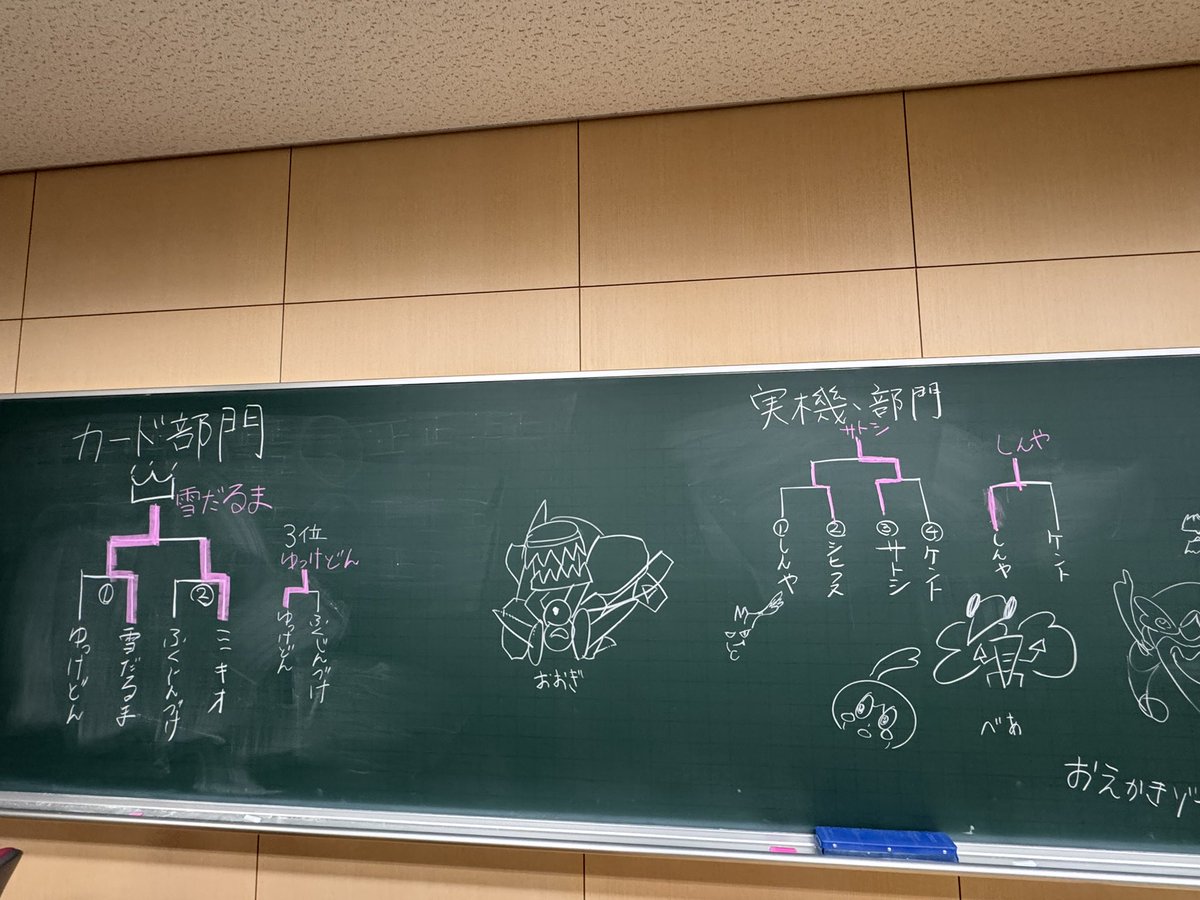 カード部門
雪だるま
①
②
ゆっけどん
雪だるま
ふくじんづけ
ミキオ
3位
ゆっけどん
ゆっけどん
ふくじんづけ
おおぎ
実機部門
サトシ
①しんや
②シビアス
③サトシ
④ケント
しんや
しんや
ケント
べあ
おえかきゾ